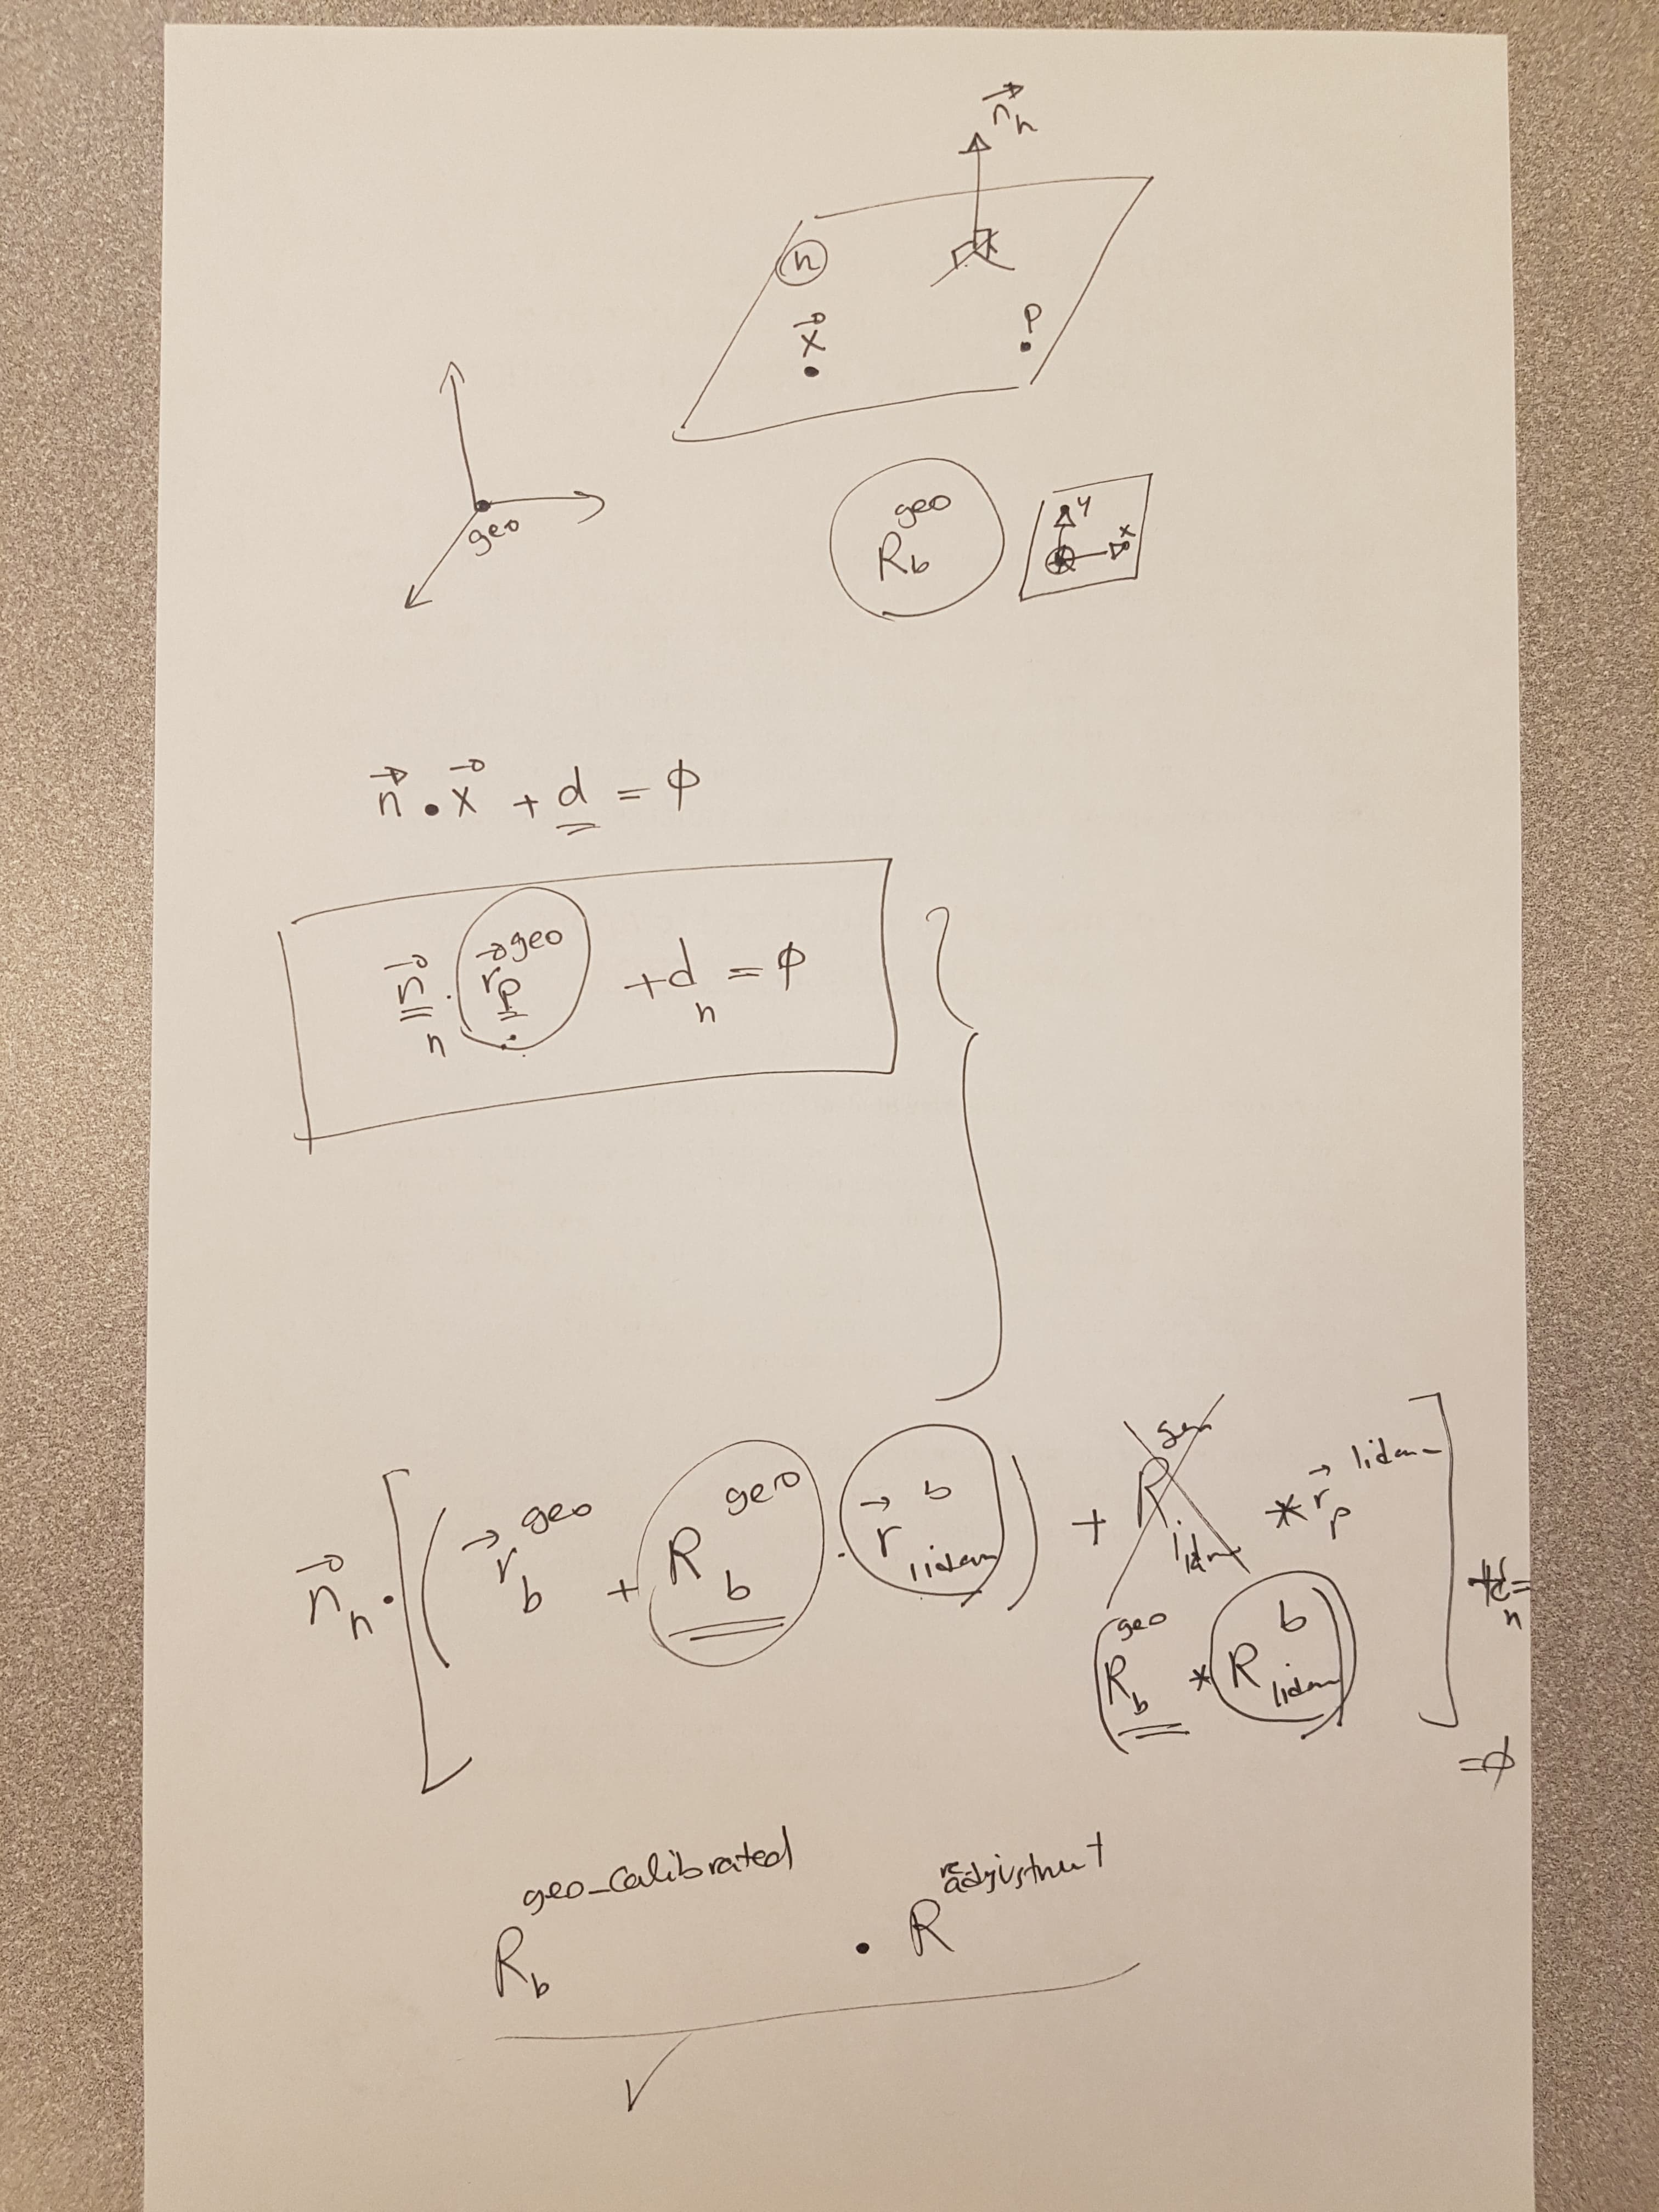 n⃗ₙ
n
x⃗
P
geo
R_b^geo
y
x
n⃗ • x⃗ + d = ϕ
n⃗ₙ · r⃗_p^geo + dₙ = ϕ
n⃗ₙ • [ ( r⃗_b^geo + R_b^geo · r⃗_lidar^b ) + R_lidar^geo * r⃗_p^lidar ] + dₙ =
( R_b^geo * R_lidar^b )
= ϕ
R_b^geo-calibrated • R^readjustment